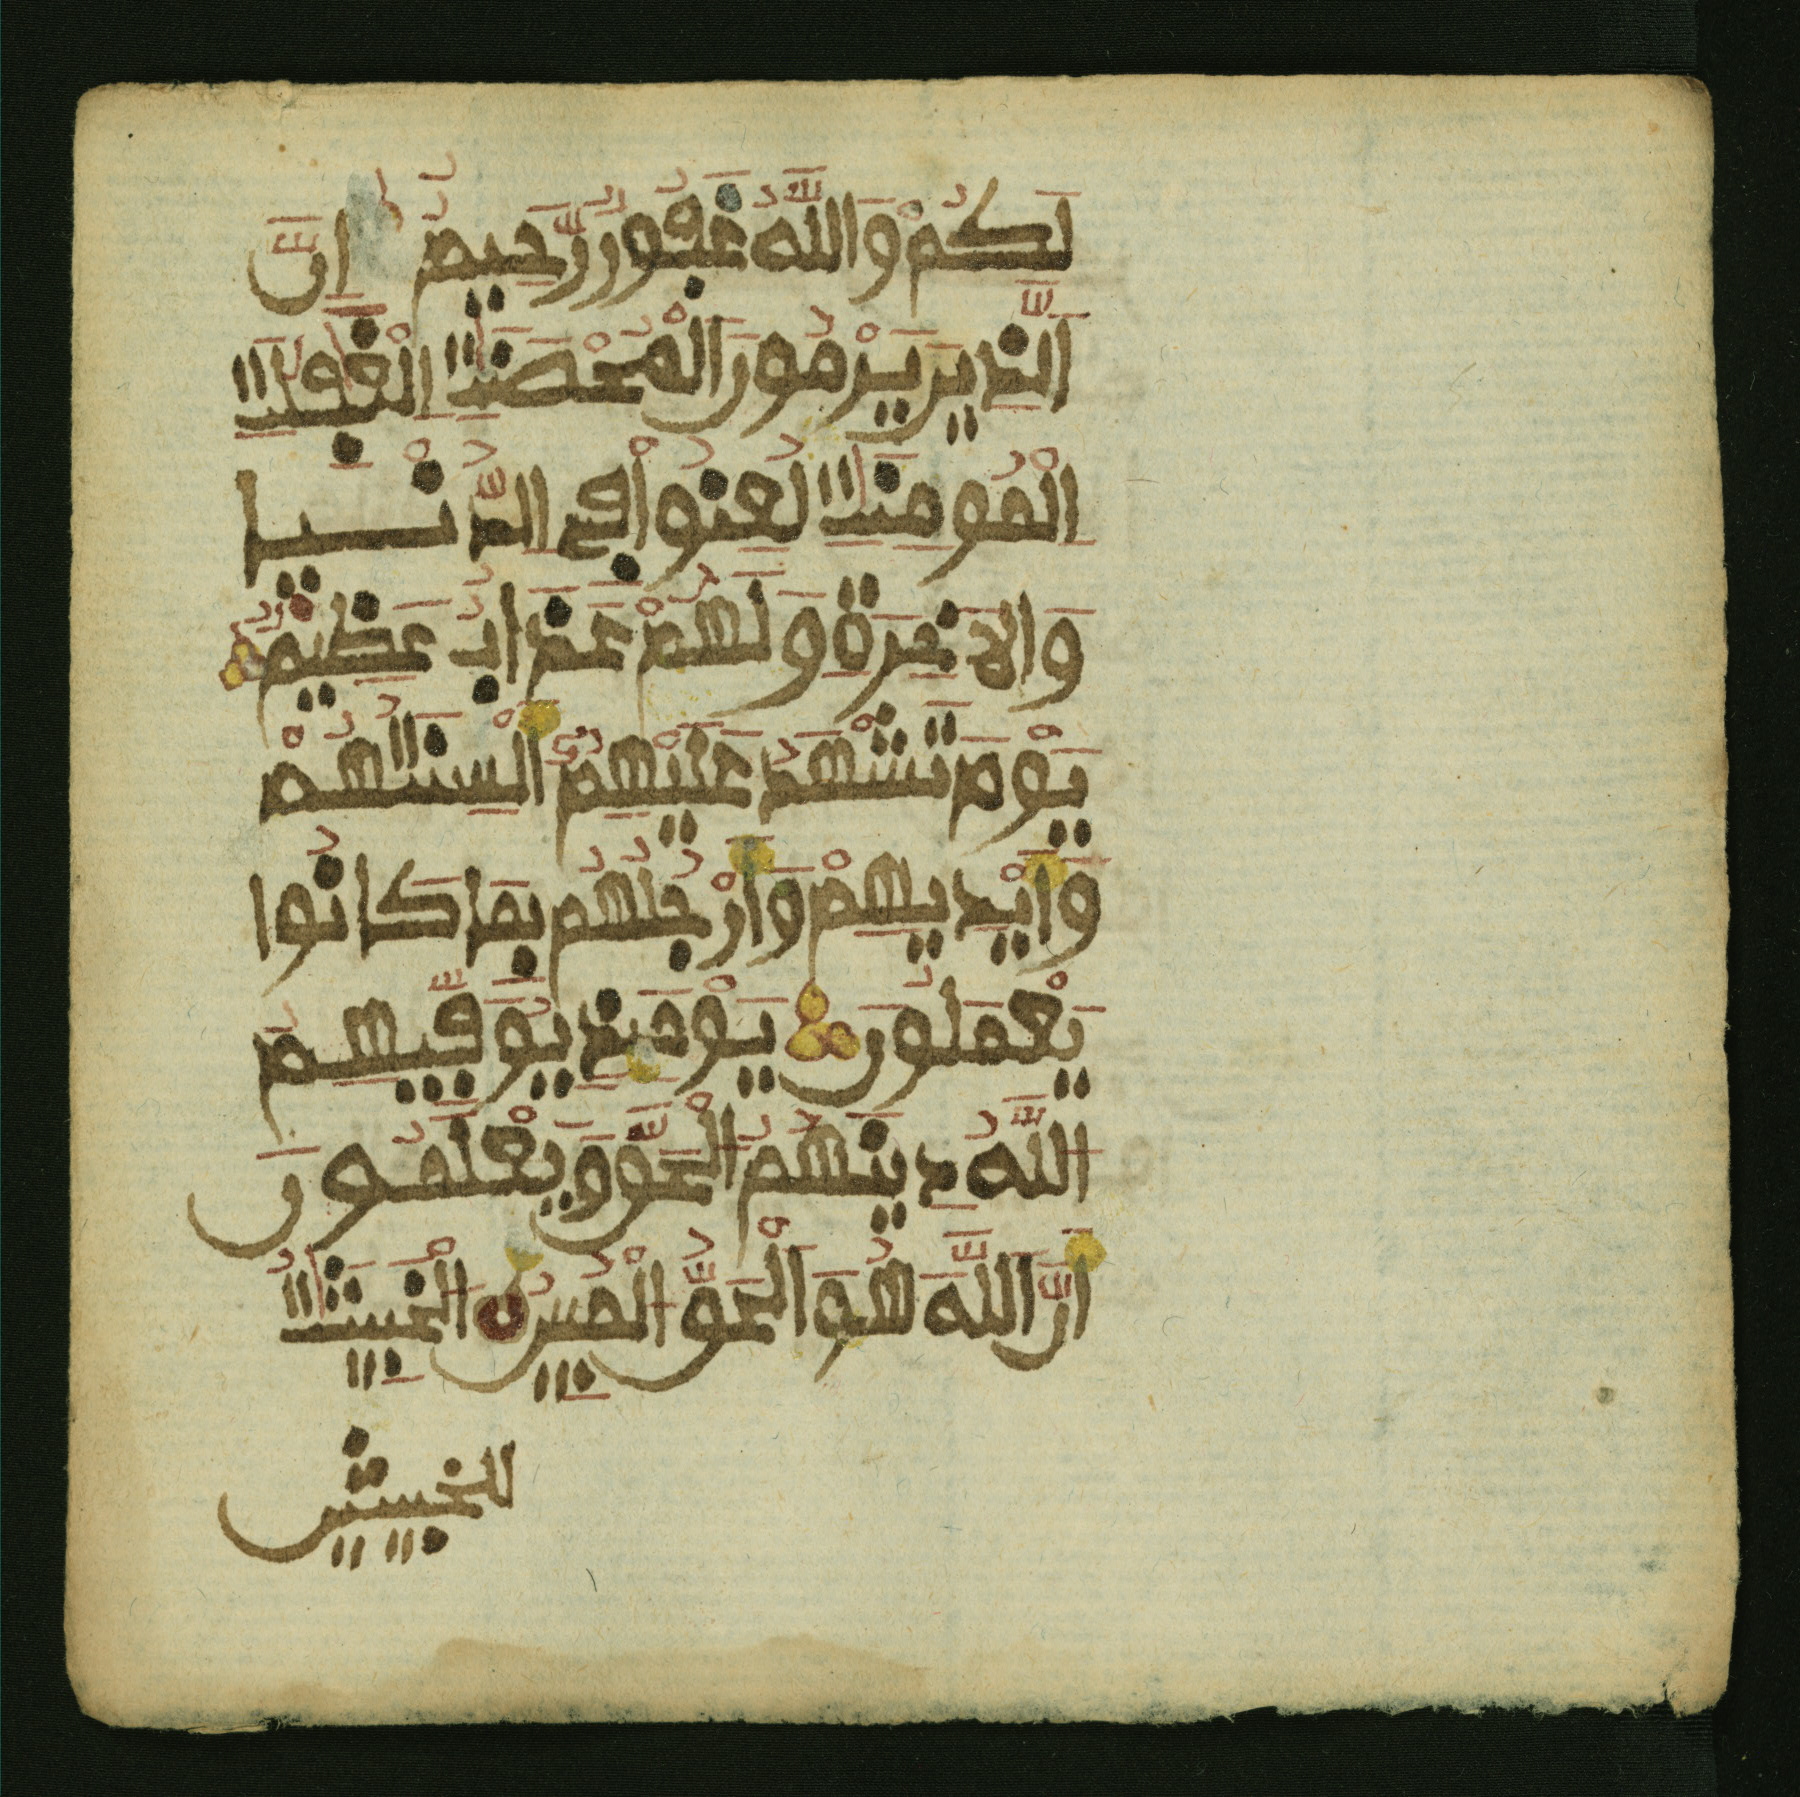 لَكُمْ وَاللَّهُ غَفُورٌ رَّحِيمٌ إِنَّ
اَلَّذِينَ يَرْمُونَ اَلْمُحْصَنَٰتِ اِلْغَٰفِلَٰتِ
اِلْمُومِنَٰتِ لُعِنُوا فِي اِلدُّنْيَا
وَالَاخِرَةِ وَلَهُمْ عَذَابٌ عَظِيمٌ
يَوْمَ تَشْهَدُ عَلَيْهِمُ أَلْسِنَتُهُمْ
وَأَيْدِيهِمْ وَأَرْجُلُهُم بِمَا كَانُوا
يَعْمَلُونَ يَوْمَئِذٍ يُوَفِّيهِمُ
اللَّهُ دِينَهُمُ الْحَقَّ وَيَعْلَمُونَ
أَنَّ اَللَّهَ هُوَ اَلْحَقُّ اُلْمُبِينُ الْخَبِيثَٰتُ
للخبيثين